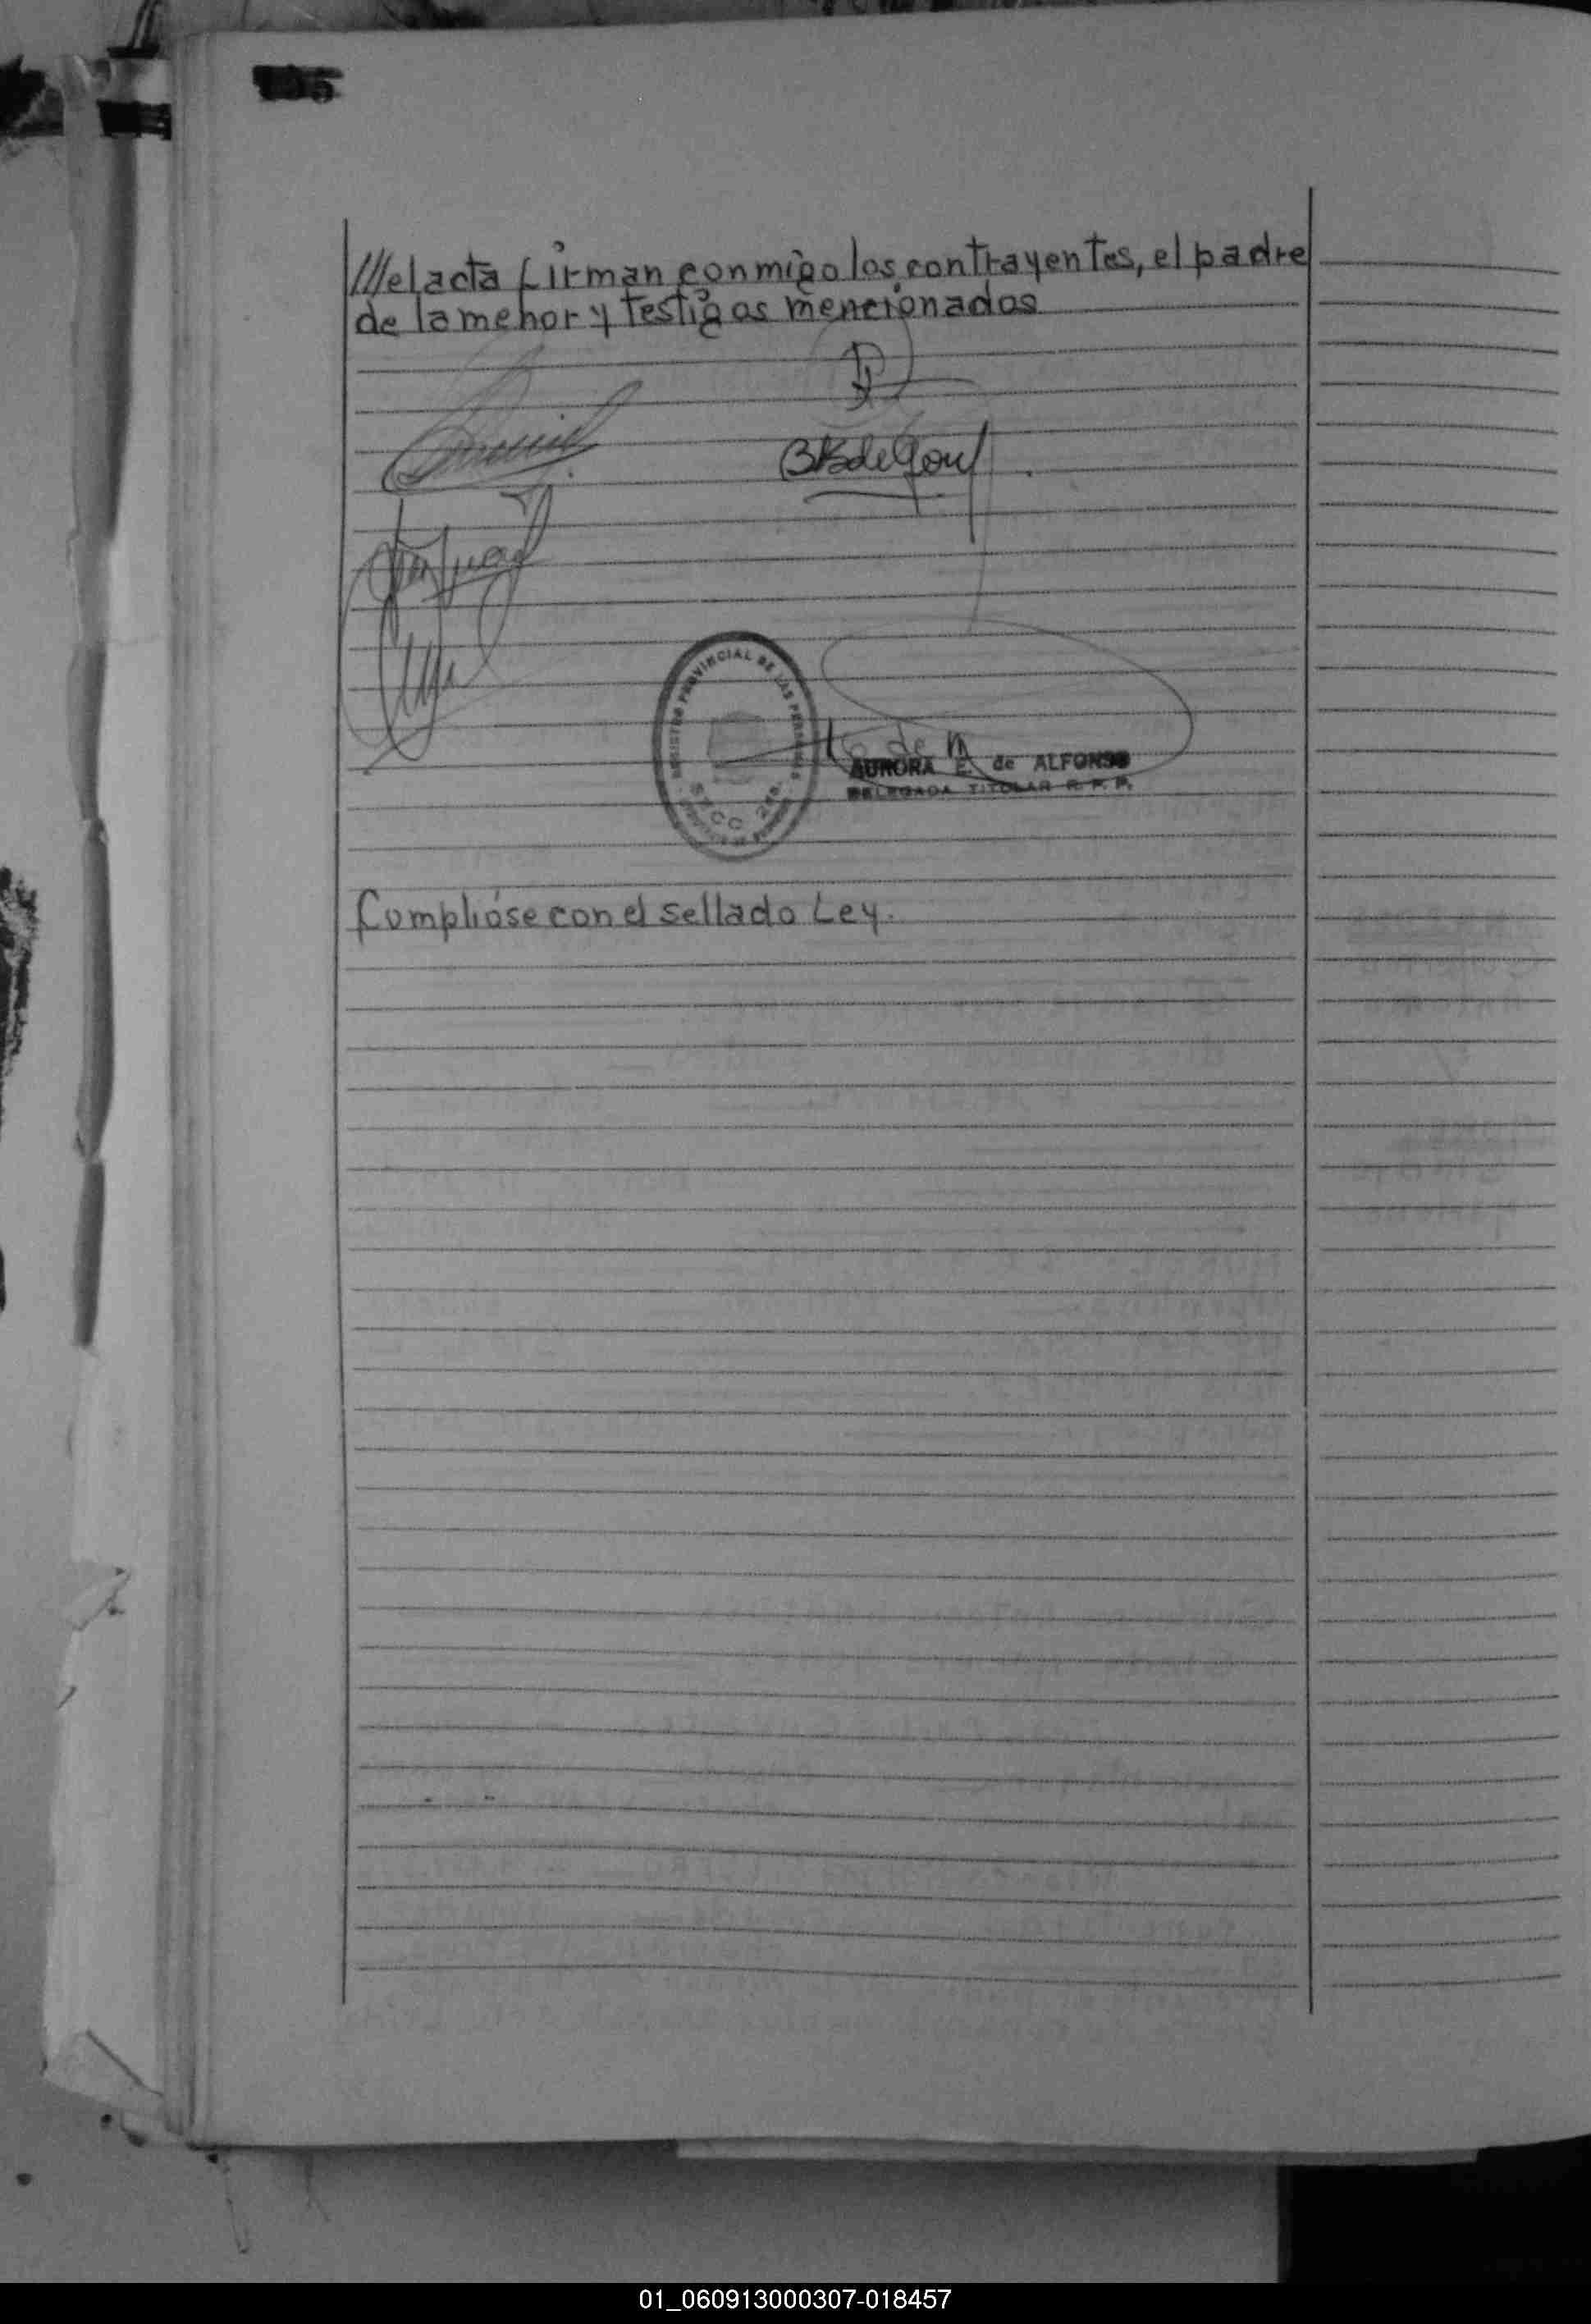 ///el acta firman conmigo los contrayentes, el padre
de la menor y testigos mencionados
REGISTRO PROVINCIAL DE LAS PERSONAS
SECC. 2da.
AURORA E. de ALFONSO
DELEGADA TITULAR R. P. P.
Cumplióse con el sellado Ley.
01_060913000307-018457